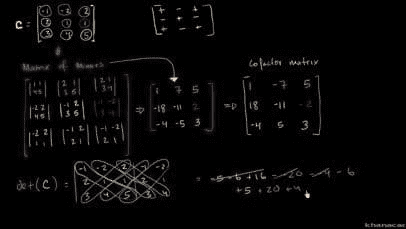 C = [-1 -2 2
2 1 1
3 4 5]
[+ - +
- + -
+ - +]
Matrix of Minors
|1 1
4 5| |2 1
3 5| |2 1
3 4|
|-2 2
4 5| |-1 2
3 5| |-1 -2
3 4|
|-2 2
1 1| |-1 2
2 1| |-1 -2
2 1|
⇒ [1 7 5
-18 -11 2
-4 -5 3]
⇒
Cofactor matrix
[1 -7 5
18 -11 -2
-4 5 3]
det(C) = -1 -2 2 -1 -2
2 1 1 2 1
3 4 5 3 4
= -5 - 6 + 16 - 20 - 4 - 6
+5 + 20 + 4